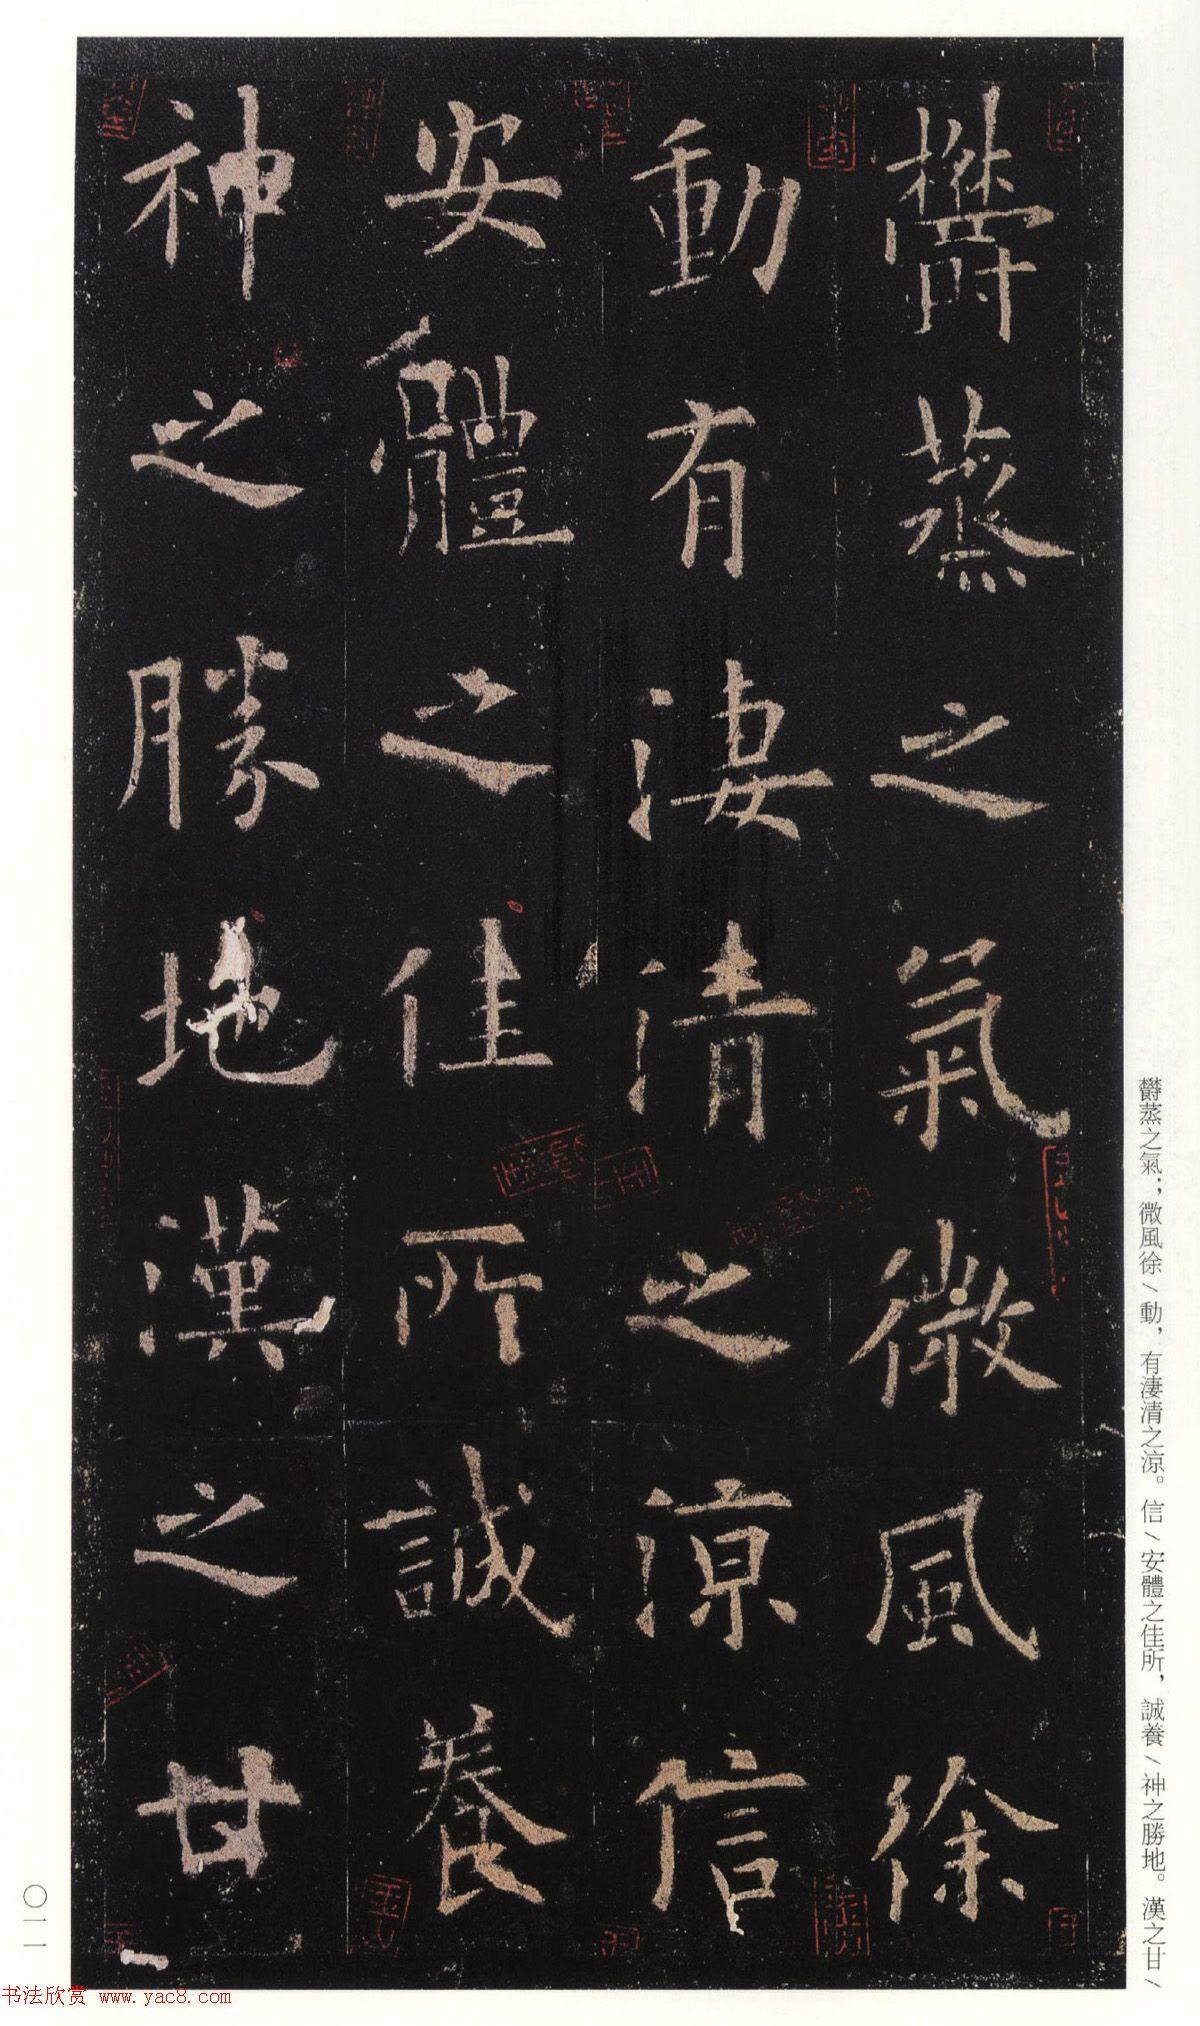 欎蒸之氣微風徐
動有淒清之涼信
安體之佳所誠養
神之勝地漢之甘
欎蒸之氣；微風徐/動，有淒清之涼。信/安體之佳所，誠養/神之勝地。漢之甘/
〇一一
书法欣赏 www.yac8.com